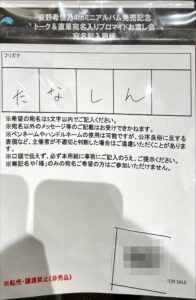 安野希世乃4thミニアルバム発売記念
トーク&直筆宛名入りブロマイドお渡し会
宛名記入用紙
フリガナ
たなしん
※希望の宛名は5文字以内でご記入ください。
※宛名以外のメッセージ等のご記載はお受けできかねます。
※ペンネームやハンドルネームの使用は可能ですが、公序良俗に反する
表現など、主催者が不適切と判断した場合はご遠慮いただくことがありま
す。
※口頭で伝えず、必ず本用紙に事前にご記入のうえ、ご提示ください。
※無記名や「様」のみの宛名をご希望の方はご参加いただけません。
※転売・譲渡禁止《非売品》
FOR SALE